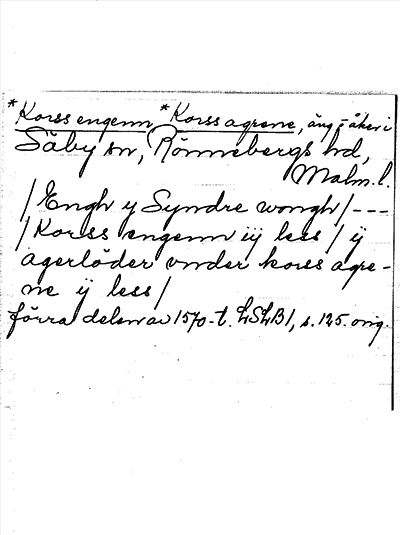 *Korss engenn *Korss agrene, äng- åker i
Säby sn, Rönnebergs hd,
Malm. l.
/Engh y Syndre wongh/---
/Korss engenn iij less/ ij
agerlöder vnder korss agre-
ne ij less/
förra delen av 1570-t. LSLB1, s. 125. orig.